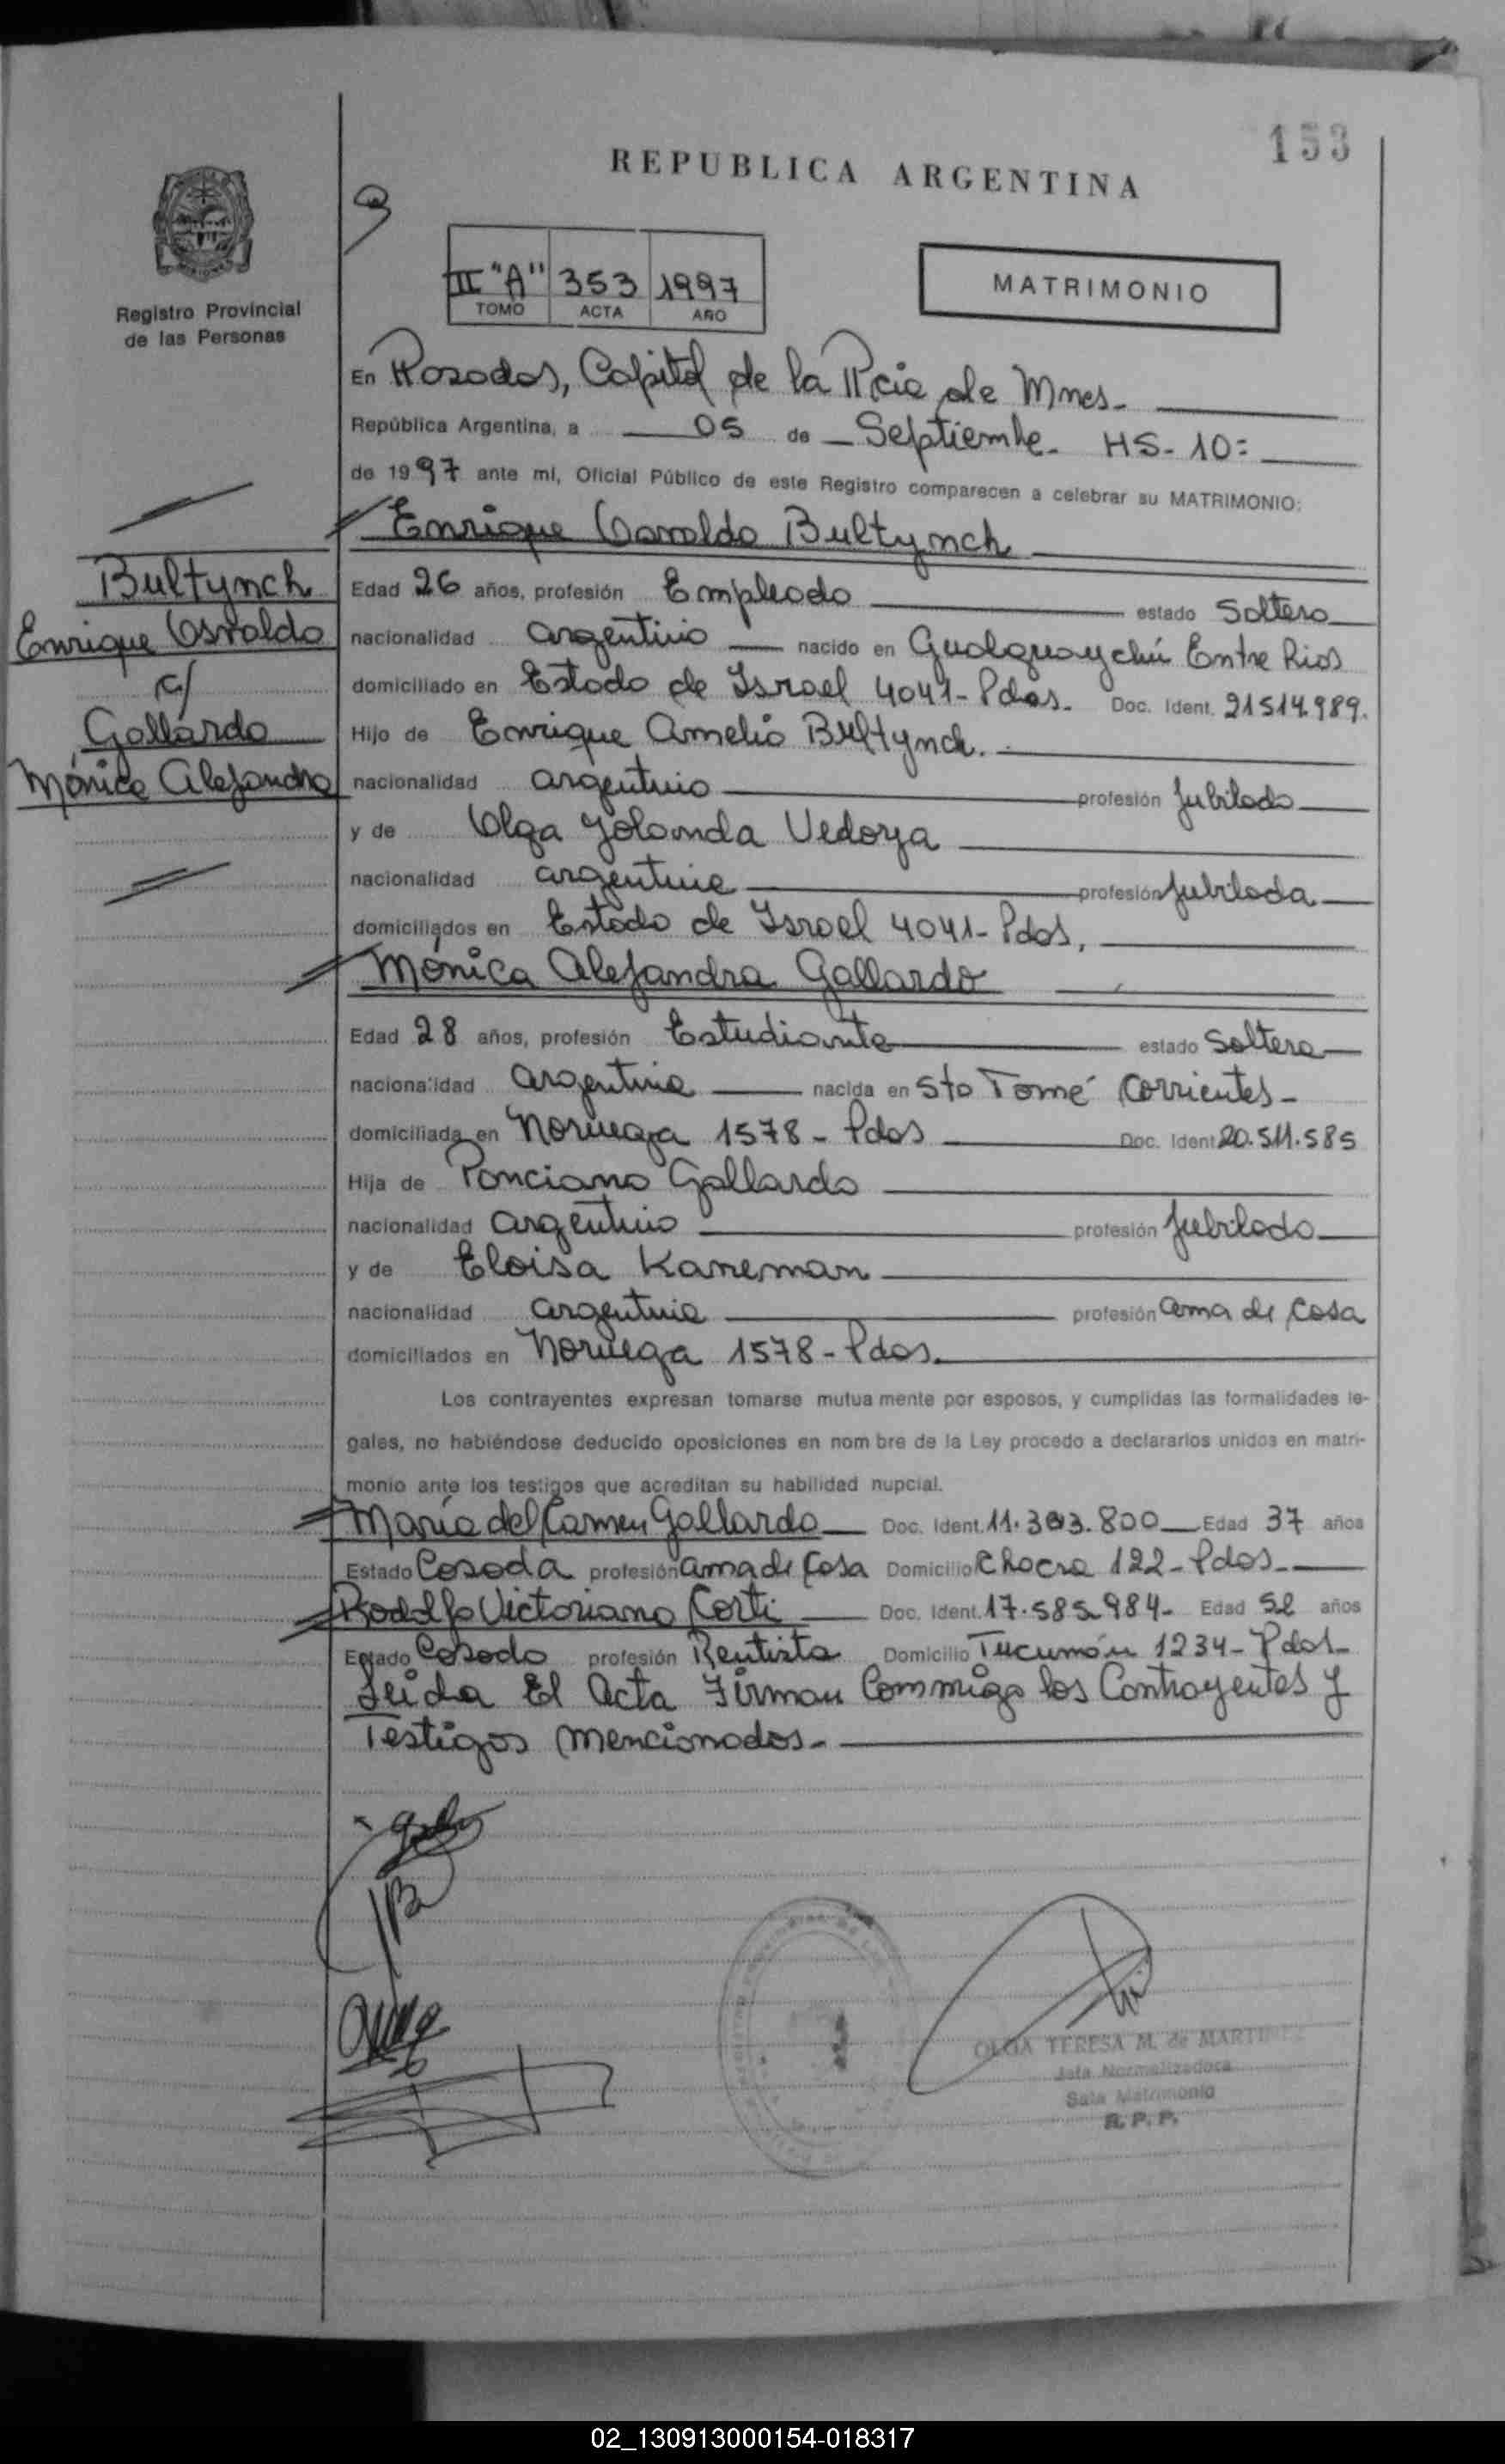 153
REPUBLICA ARGENTINA
Registro Provincial
de las Personas
II "A" 353 1997
TOMO ACTA AÑO
MATRIMONIO
En Posadas, Capital de la Pcia de Mnes-
República Argentina, a 05 de Septiembre- HS- 10:
de 1997 ante mi, Oficial Público de este Registro comparecen a celebrar su MATRIMONIO:
Enrique Osvaldo Bultynch
Bultynch
Enrique Osvaldo
c/
Gallardo
Mónica Alejandra
Edad 26 años, profesión Empleado estado Soltero
nacionalidad argentino nacido en Gualguaychú Entre Rios
domiciliado en Estado de Israel 4041- Pdas. Doc. Ident. 21514.989.
Hijo de Enrique Amelio Bultynch.
nacionalidad argentino profesión Jubilado
y de Olga Yolanda Vedoya
nacionalidad argentina profesión Jubilada
domiciliados en Estado de Israel 4041- Pdas,
Mónica Alejandra Gallardo
Edad 28 años, profesión Estudiante estado Soltera
nacionalidad Argentina nacida en Sto Tomé Corrientes-
domiciliada en Noruega 1578- Pdas Doc. Ident 20.511.585
Hija de Ponciano Gallardo
nacionalidad argentino profesión Jubilado
y de Eloisa Kaneman
nacionalidad argentina profesión ama de casa
domiciliados en Noruega 1578- Pdas.
Los contrayentes expresan tomarse mutua mente por esposos, y cumplidas las formalidades le-
gales, no habiéndose deducido oposiciones en nom bre de la Ley procedo a declararlos unidos en matri-
monio ante los testigos que acreditan su habilidad nupcial.
María del Carmen Gallardo Doc. Ident. Edad 37 años
Estado Casada profesión ama de casa Domicilio Chacra 122- Pdas-
Rodolfo Victoriano Corti Doc. Ident. 17.585.984- Edad 52 años
Estado Casado profesión Rentista Domicilio Tucumán 1234- Pdas-
Leida El Acta Firman Commigo los Contrayentes y
Testigos mencionados-
OLGA TERESA M. de MARTINEZ
Jefa Normalizadora
Sala Matrimonio
R. P. P.
02_130913000154-018317